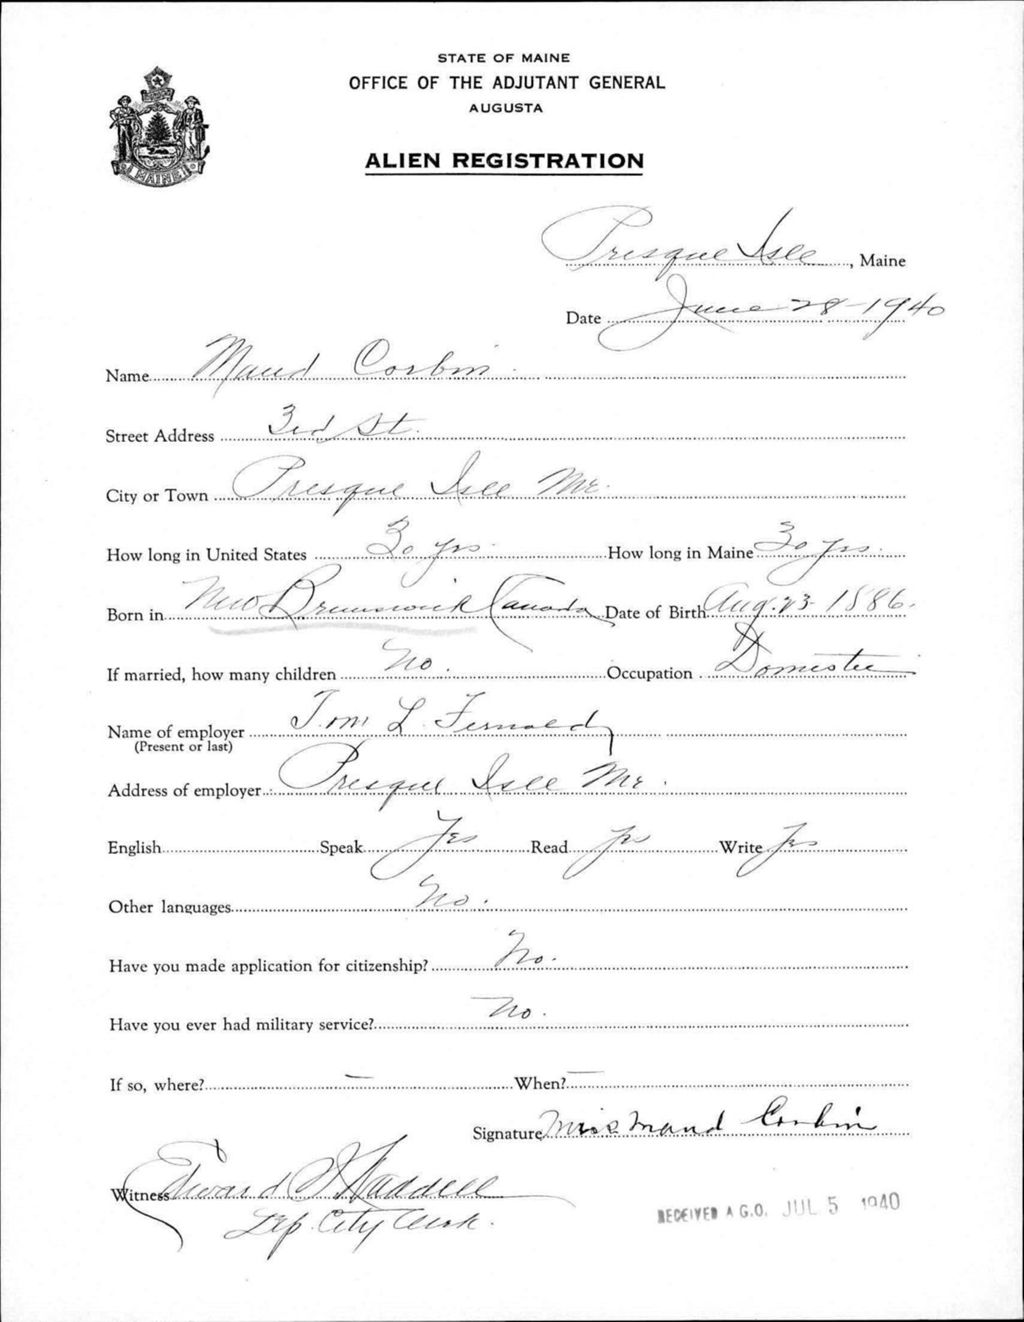 STATE OF MAINE
OFFICE OF THE ADJUTANT GENERAL
AUGUSTA
MAINE
ALIEN REGISTRATION
Presque Isle, Maine
Date June 28-1940
Name Maud Corbin
Street Address 3rd St.
City or Town Presque Isle Me.
How long in United States 30 yrs How long in Maine 30 yrs.
Born in New Brunswick Canada Date of Birth Aug. 23-1886.
If married, how many children No. Occupation Domestic
Name of employer Tom L. Fernald
(Present or last)
Address of employer Presque Isle Me.
English Speak Yes Read Yes Write Yes
Other languages No.
Have you made application for citizenship? No.
Have you ever had military service? No.
If so, where? — When? —
Signature Miss Maud Corbin
Witness Edward Waddell
Dep. City Clerk.
RECEIVED A.G.O. JUL 5 1940